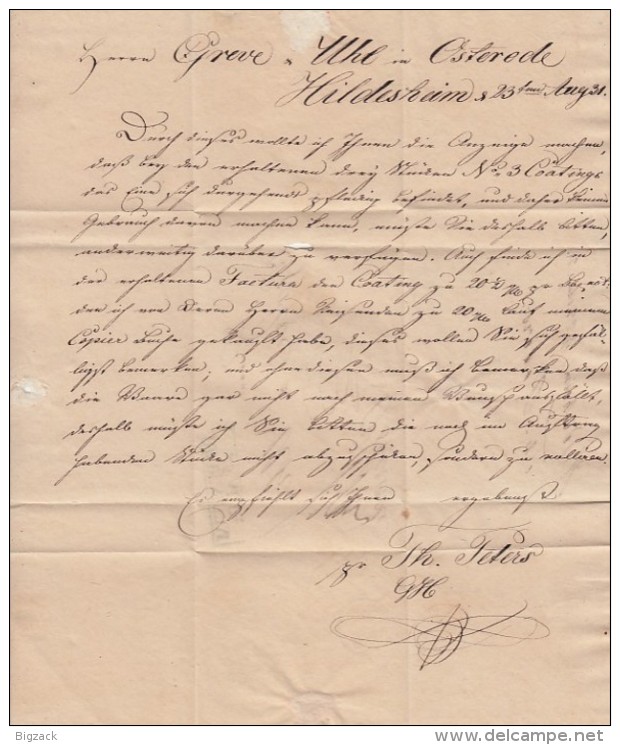 Herrn Greve & Uhl in Osterode
Hildesheim d 23ten Aug 31.
Durch dieses wollte ich Ihnen die Anzeige machen,
daß bey den erhaltenen drey Stücken No 3 Coatings
das Eine sich durgehends fleckig befindet, und daher keinen
Gebrauch davon machen kann, müßte Sie deshalb bitten,
anderweitig darüber zu verfügen. Auch finde ich in
der erhaltenen Factura den Coating zu 20 zu
den ich von Herrn Reisenden zu 20 lauf meinem
Copier Buche gekauft habe, dieses wollen Sie sich gefäl-
ligst bemerken; und ohne diesen muß ich bemerken daß
die Waare gar nicht nach meinen Wunsch ausfällt,
deshalb müßte ich Sie bitten die noch im Auftrag
habenden Stücke nicht abzuschicken, sondern zu
Es empfiehlt sich Ihnen ergebenst
pr Th. Peters
Bigzack
www.delcampe.net